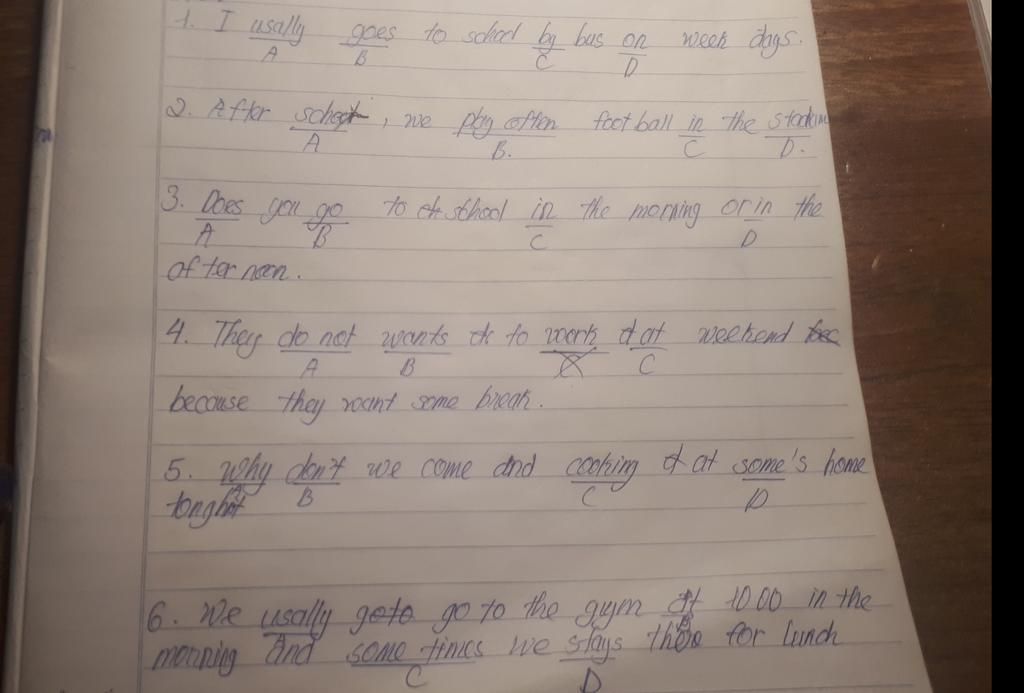 1. I usally goes to school by bus on week days.
A B C D
2. After school, we play often football in the stadium
A B. C D.
3. Does you go to school in the morning or in the
A B C D
after noon.
4. They do not wants to work at weekend
A B C
because they want some break.
5. Why don't we come and cooking at some's home
A B C D
tonght
6. We usally go to the gym at 10 00 in the
A B
morning and some times we stays there for lunch
C D